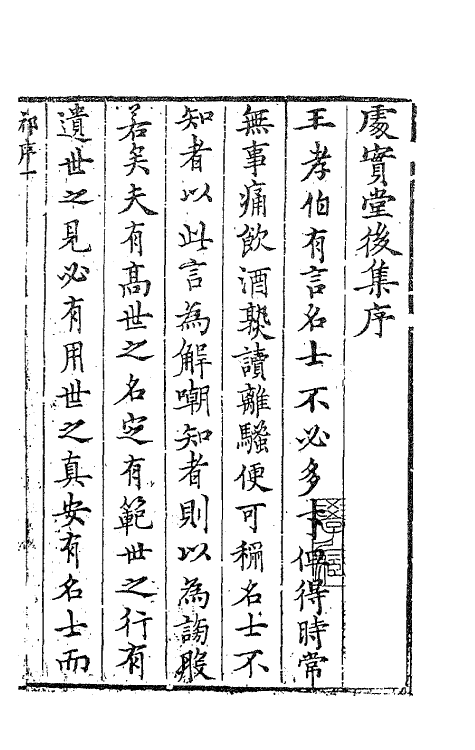 處實堂後集序
王孝伯有言名士不必多才但得時常
無事痛飲酒熟讀離騷便可稱名士不
知者以此言為解嘲知者則以為謅殷
若矣夫有高世之名定有範世之行有
遺世之見必有用世之真安有名士而
序一